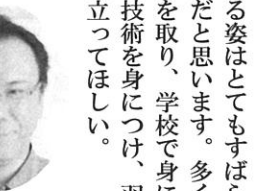 る姿はとてもすばら
だと思います。多く
を取り、学校で身に
技術を身につけ、
立ってほしい。